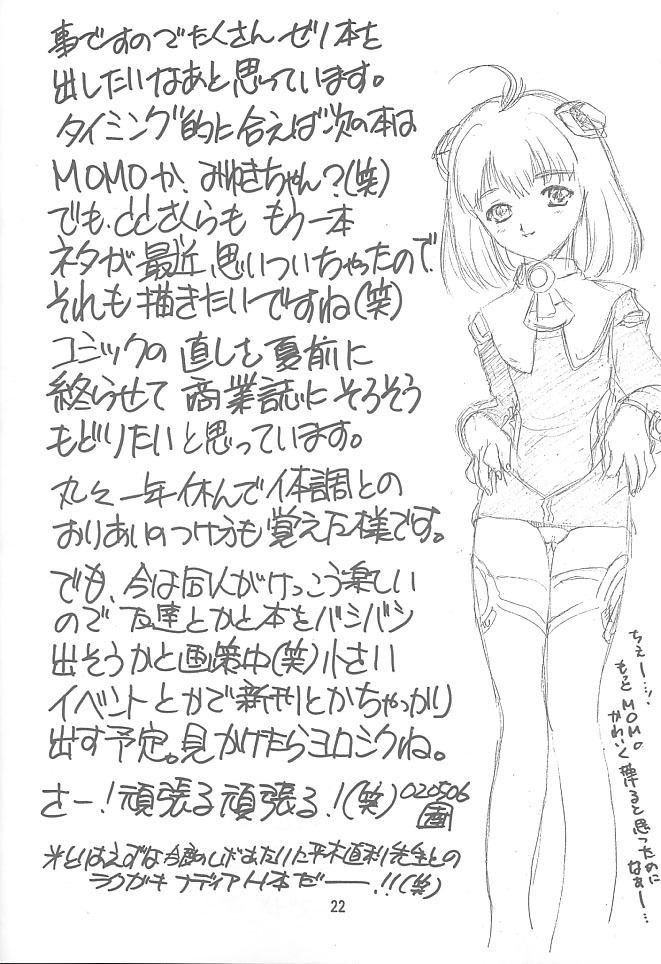 事ですのでたくさん ゼノ本を
出したいなあと思っています。
タイミング的に合えば次の本は
MOMOか、みゆきちゃん?(笑)
でも、CCさくらも もう一本
ネタが最近、思いついちゃったので、
それも描きたいですね(笑)
コミックの直しを夏前に
終らせて 商業誌にそろそろ
もどりたいと思っています。
丸々一年休んで体調との
おりあいのつけ方も覚えた様です。
でも、今は同人がけっこう楽しい
ので友達とかと本をバシバシ
出そうかと画策中(笑)小さい
イベントとかで新刊とかちゃっかり
出す予定。見かけたらヨロシクね。
さー!頑張る頑張る!(笑) 020506
※とりあえずは今度の 平木直利先生との
ラクガキ ナディアH本だーー!!(笑)
ちぇー…。
もっと MOMO
かわいく
描けると思ったのに
なぁー…
22